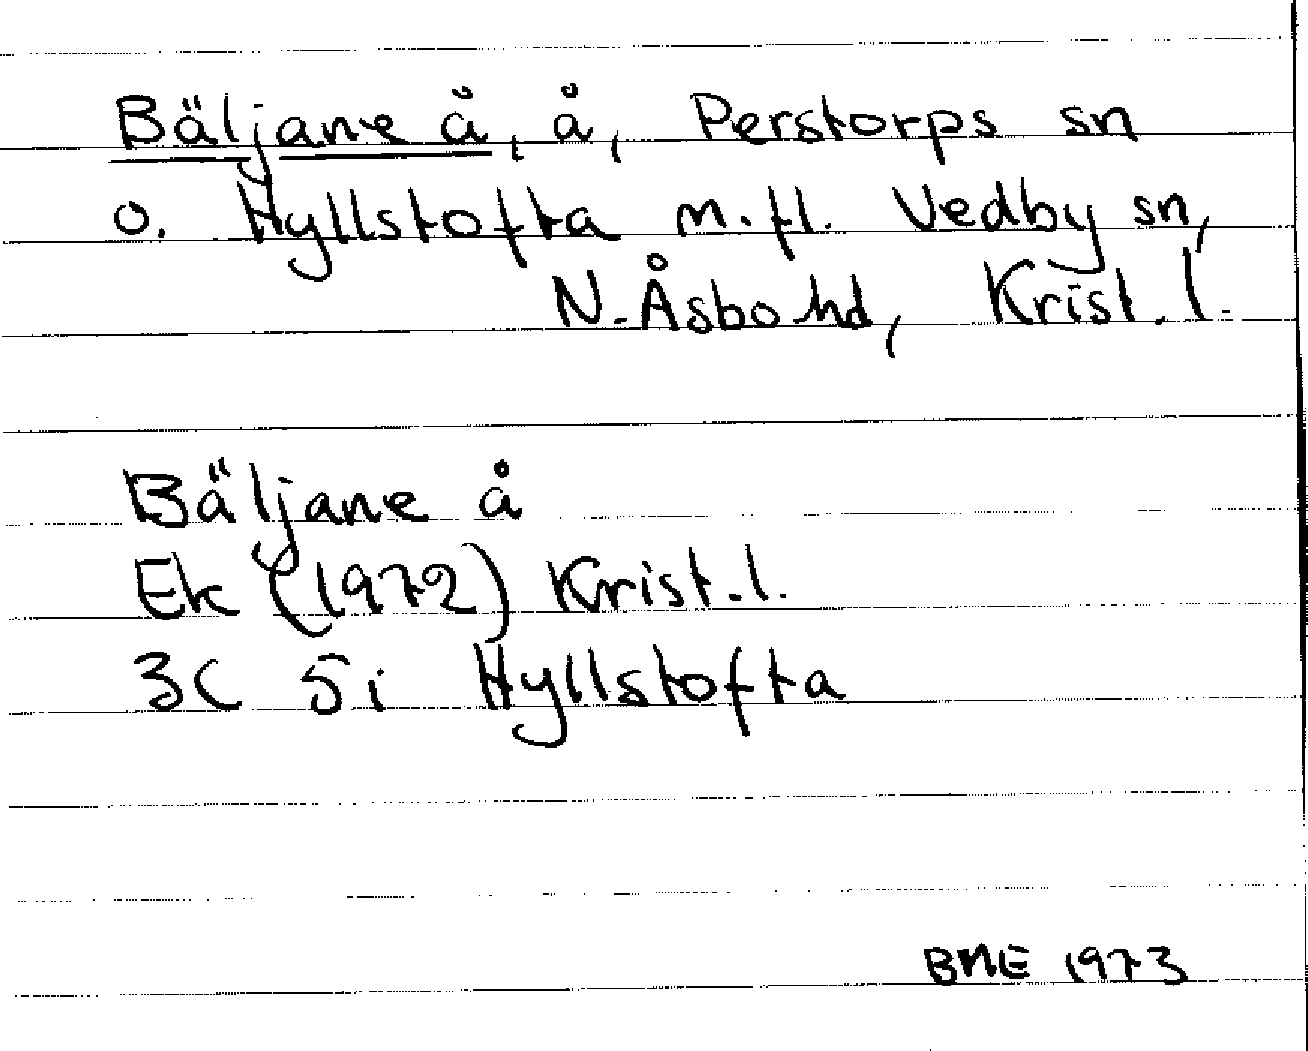 Bäljane å, å, Perstorps sn
o. Hyllstofta m.fl. Vedby sn,
N. Åsbo hd, Krist. l.
Bäljane å
Ek (1972) Krist. l.
3C 5i Hyllstofta
BME 1973